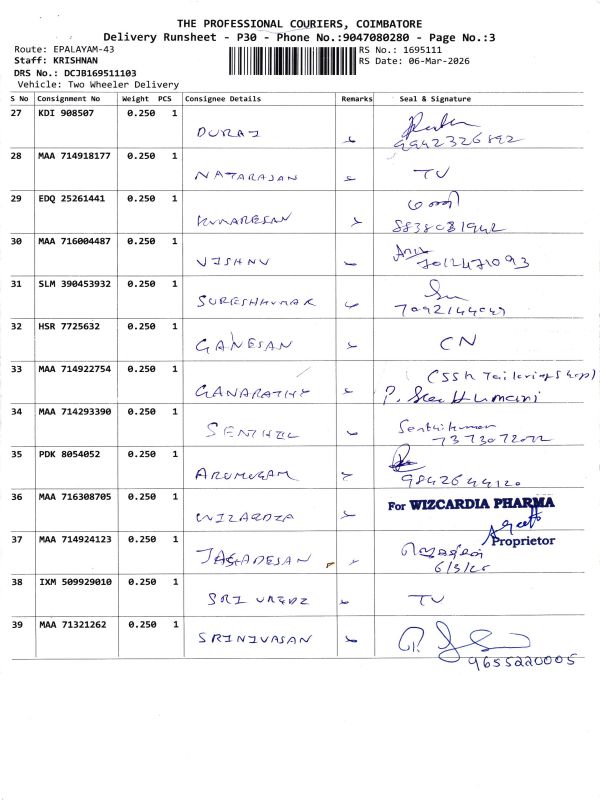 THE PROFESSIONAL COURIERS, COIMBATORE
Delivery Runsheet - P30 - Phone No.:9047080280 - Page No.:3
Route: EPALAYAM-43 RS No.: 1695111
Staff: KRISHNAN RS Date: 06-Mar-2026
DRS No.: DCJB169511103
Vehicle: Two Wheeler Delivery
S No Consignment No Weight PCS Consignee Details Remarks Seal & Signature
27 KDI 908507 0.250 1
DURAI
9942326892
28 MAA 714918177 0.250 1
NATARAJAN TV
29 EDQ 25261441 0.250 1
KUMARESAN 8838081942
30 MAA 716004487 0.250 1
VISHNU 7012471093
31 SLM 390453932 0.250 1
SURESHKUMAR
32 HSR 7725632 0.250 1
GANESAN CN
33 MAA 714922754 0.250 1
(SSK Tailoring Shop)
GANAPATHY P.
34 MAA 714293390 0.250 1
SENTHIL Senthilkumar
35 PDK 8054052 0.250 1
ARUMUGAM 9842644120
36 MAA 716308705 0.250 1
For WIZCARDIA PHARMA
WIZARDIA
37 MAA 714924123 0.250 1
Proprietor
JAGADESAN
6/3/26
38 IXM 509929010 0.250 1
SRI VREDZ TV
39 MAA 71321262 0.250 1
SRINIVASAN
9655220005